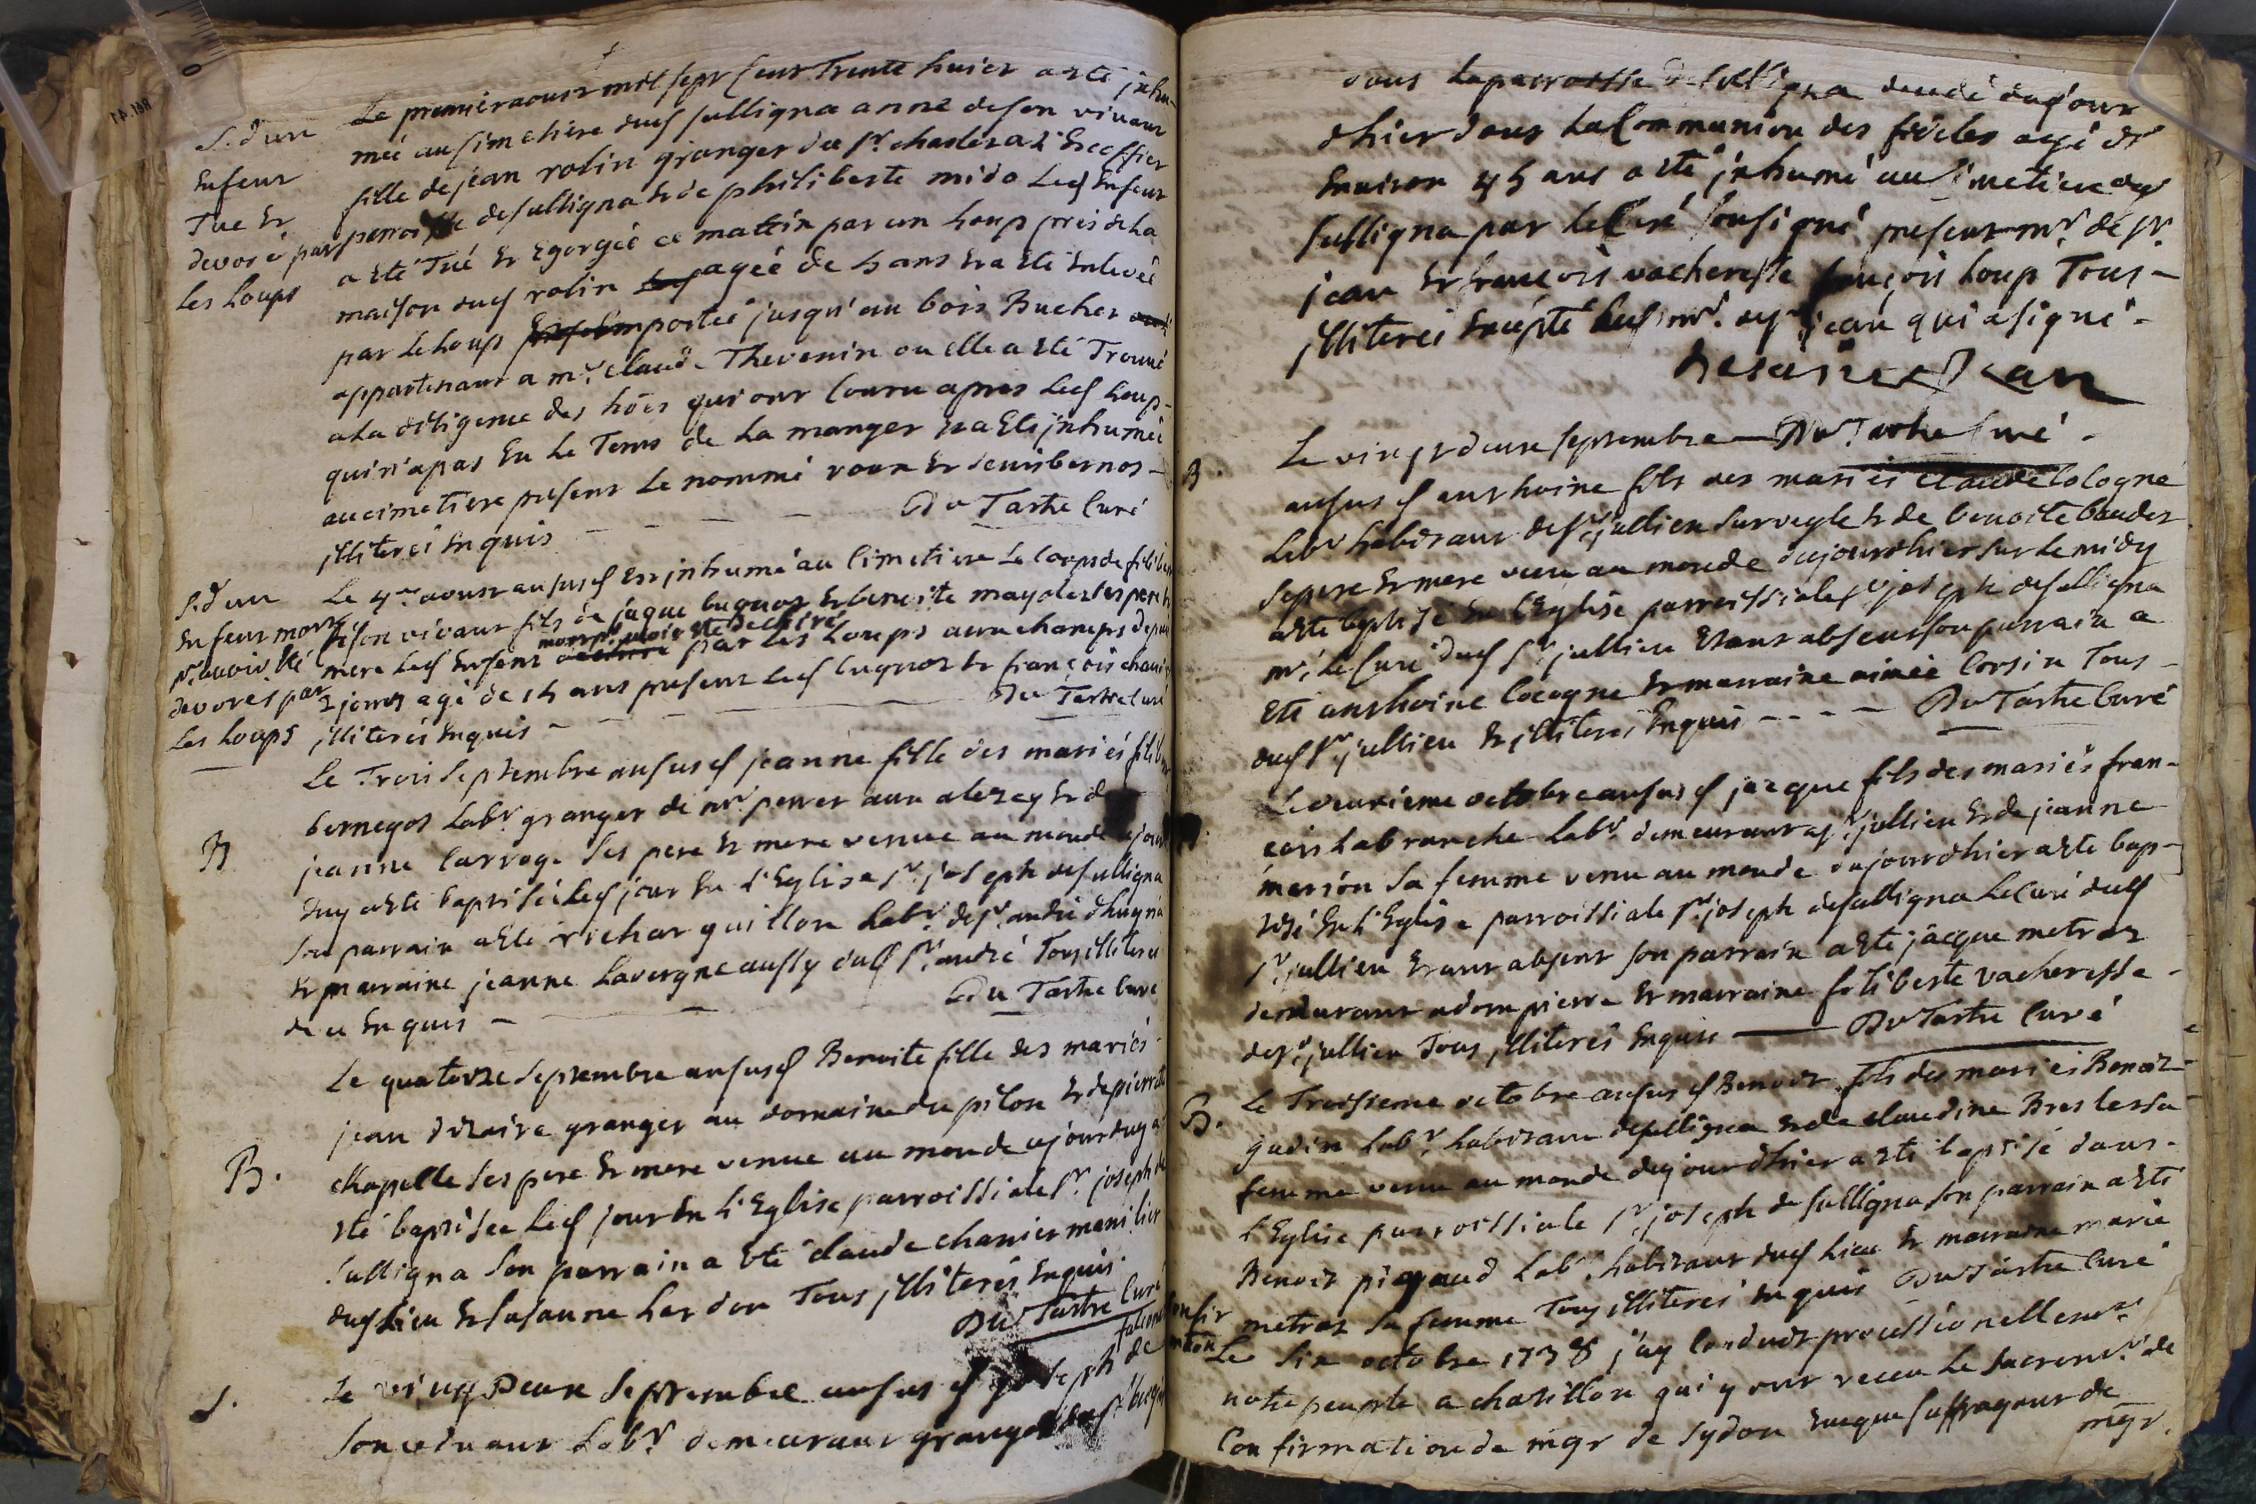 Le premier aoust mil sept cent trente huict a esté inhu-
S. d'un
enfent
Tué et
devoré par
les Loups
meé au simetiere dud sulligna anne de son vivant
fille de jean rolin granger du sr. charles
perroisse de sulligna et de philiberte mido led enfent
a esté Tué et Egorgée ce mattin par un Loup près de la
maison dud rolin agée de 5 ans et a esté Enlevée
par le Loup emportée jusqu'au bois Bucher
appartenant a mr. claude Thevenin ou elle a esté Trouvé
a la diligence des hoes qui ont Couru apres led Loup
qui n'a pas Eu le Tems de la manger et a esté inhumée
au cimetiere present le nommé roux et denis bernos-
illiterés enquis - - - Du Tartre Curé
S. d'un
Enfent mort
pr. avoir été
devorés par
les Loups
Le 4me aoust an susd Est inhumé au Cimetiere Le Corps de
de son vivant fils de jaque bugnos et benoite mayoles ses pere et
mere led Enfent mort pr. avoir esté déchiré par les Loups aux champs depuis
2 jours agé de 15 ans present led bugnos et françois
illiterés enquis - Du Tartre Curé
Le Trois Septembre an susd jeanne fille des mariés
B
bernegos Labr. granger de mr perret aux et de
jeanne Carroge ses pere et mere venue au monde
duy a esté baptisée led jour en L'Eglise St. joseph de sulligna
son parrain a esté richar guillon Labr. de St. andré d'huyria
et marraine jeanne Lavergne aussy dud St. andré Tous illiterés
de ce enquis - - - Du Tartre Curé
Le quatorze Septembre an susd Benoite fille des mariés
jean dezaire granger au domaine du pilon et de pierrette
B.
chapelle ses pere et mere venue au monde cejourduy a
esté baptisée led jour en L'Eglise parroissiale St. joseph de
sulligna son parrain a esté claude chanier manilier
dud Lieu et susanne Lardon Tous illiterés enquis.
Du Tartre Curé
S.
Le vingt Deux Septembre an susd joseph de
son vivant Labr. demeurant granger
dans la parroisse de sulligna decedé dujour
dhier dans La Communion des fideles agé d'
Environ 45 ans a esté inhumé au simetiere dud
sulligna par le Curé sousigné present mr. de St.
jean et françois vacheresse françois Loup Tous-
illiterés Excepté led mr. de St jean qui a signé-
De saint Jean
Le vingt deux septembre - Du Tartre Curé -
B.
an susd anthoine fils des mariés claude Cologne
Labr habitant de St. jullien sur veyle et de benoite baudet
se pere et mere venu au monde dujourdhier sur Le midy
a esté baptisé en L'Eglise parroissiale St joseph de sulligna
mr. Le Curé dud St. jullien Etant absent son parrain a
Eté anthoine Cocogne et marraine aimée Corsin Tous-
dud St. jullien et illiterés enquis - - - - Du Tartre Curé
Le deuxieme octobre an susd jacque fils des mariés fran-
cois Labranche Labr. demeurant a St. jullien et de jeanne
merion sa femme venu au monde dujourdhier a esté bap-
tisé en L'Eglise parroissiale St. joseph de sulligna Le Curé dud
St. jullien Etant absent son parrain a esté jacque metraz
demeurant a dompierre et marraine filiberte vacheresse -
de St. jullien Tous illiterés enquis - Du Tartre Curé
B.
Le Troisieme octobre an susd Benoit fils des mariés Benoit
gudin Labr. habitant de sulligna et de claudine Bresles sa
femme venu au monde dujourdhier a esté baptisé dans-
L'Eglise parroissiale St. joseph de sulligna son parrain a esté
Benoit pigaud Labr. habitant dud Lieu et marraine marie
metraz sa femme Tous illiterés enquis Du Tartre Curé
Le Six octobre 1738 j'ay Conduit processionellemt.
notre peuple a chatillon qui y ont receu Le Sacremt. de
Confirmation de mgr de Sydon Eveque suffragant de
mgr.